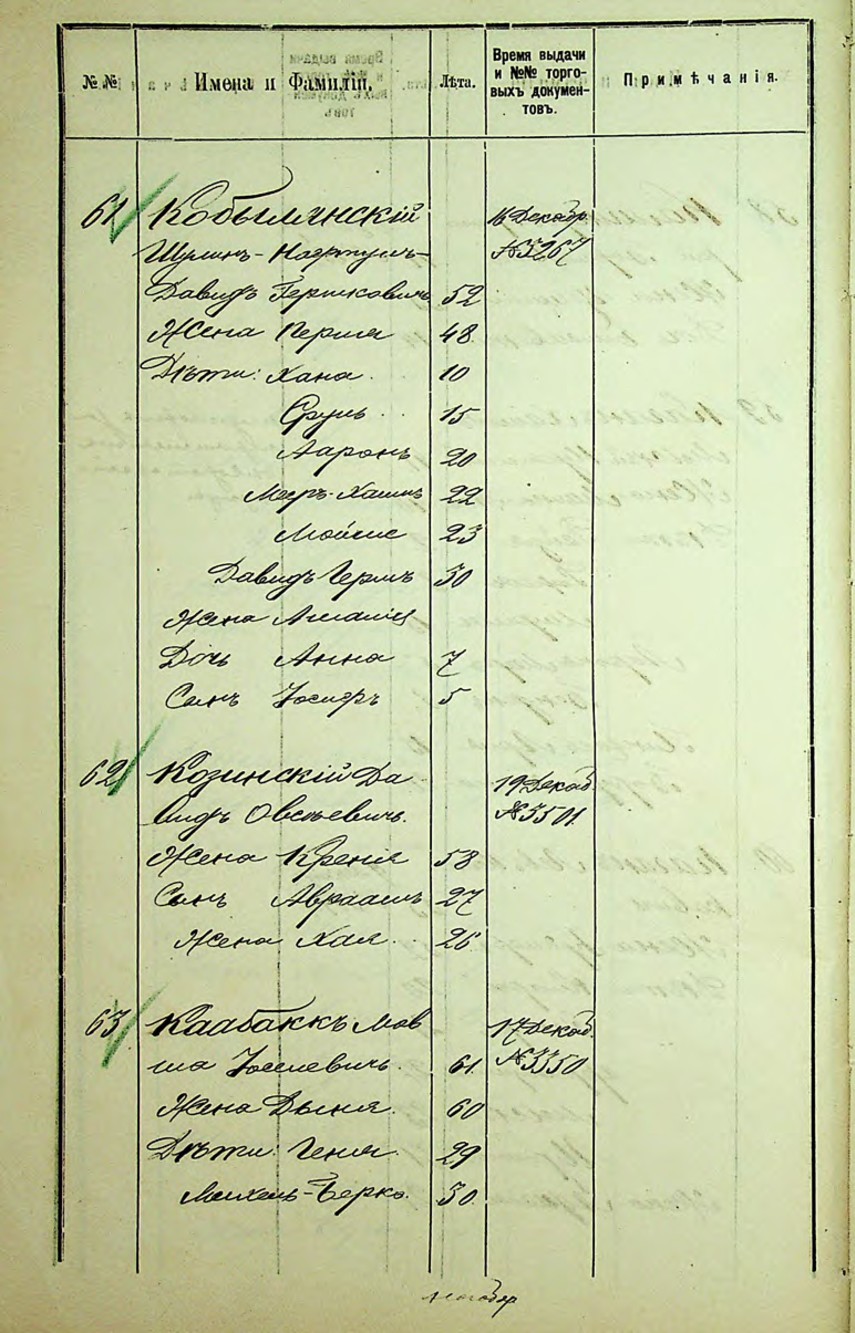 №№ Имена и Фамиліи. Лѣта. Время выдачи и №№ торговыхъ документовъ. Примѣчанія.
61 Кобылянскій 16 Декабр.
№3267
Давидъ Гершковичъ 52
Жена Перля 48
Дѣти: Хана 10
Сруль 15
Ааронъ 20
Меер-Хаимъ 22
Мойше 23
Давидъ Герш 30
Жена
Дочь Анна 7
Сынъ Іосифъ 5
62 Козинскій Да 19 Декаб.
видъ Овсѣевичъ. №3501.
Жена Крейня 58
Сынъ Авраамъ 27
Жена Хая 26
63 Каабаккъ Мов 17 Декаб.
ша Іоселевичъ. 61. №3350
Жена Дыня. 60
Дѣти: Геня. 29
Михель-Берко. 30.